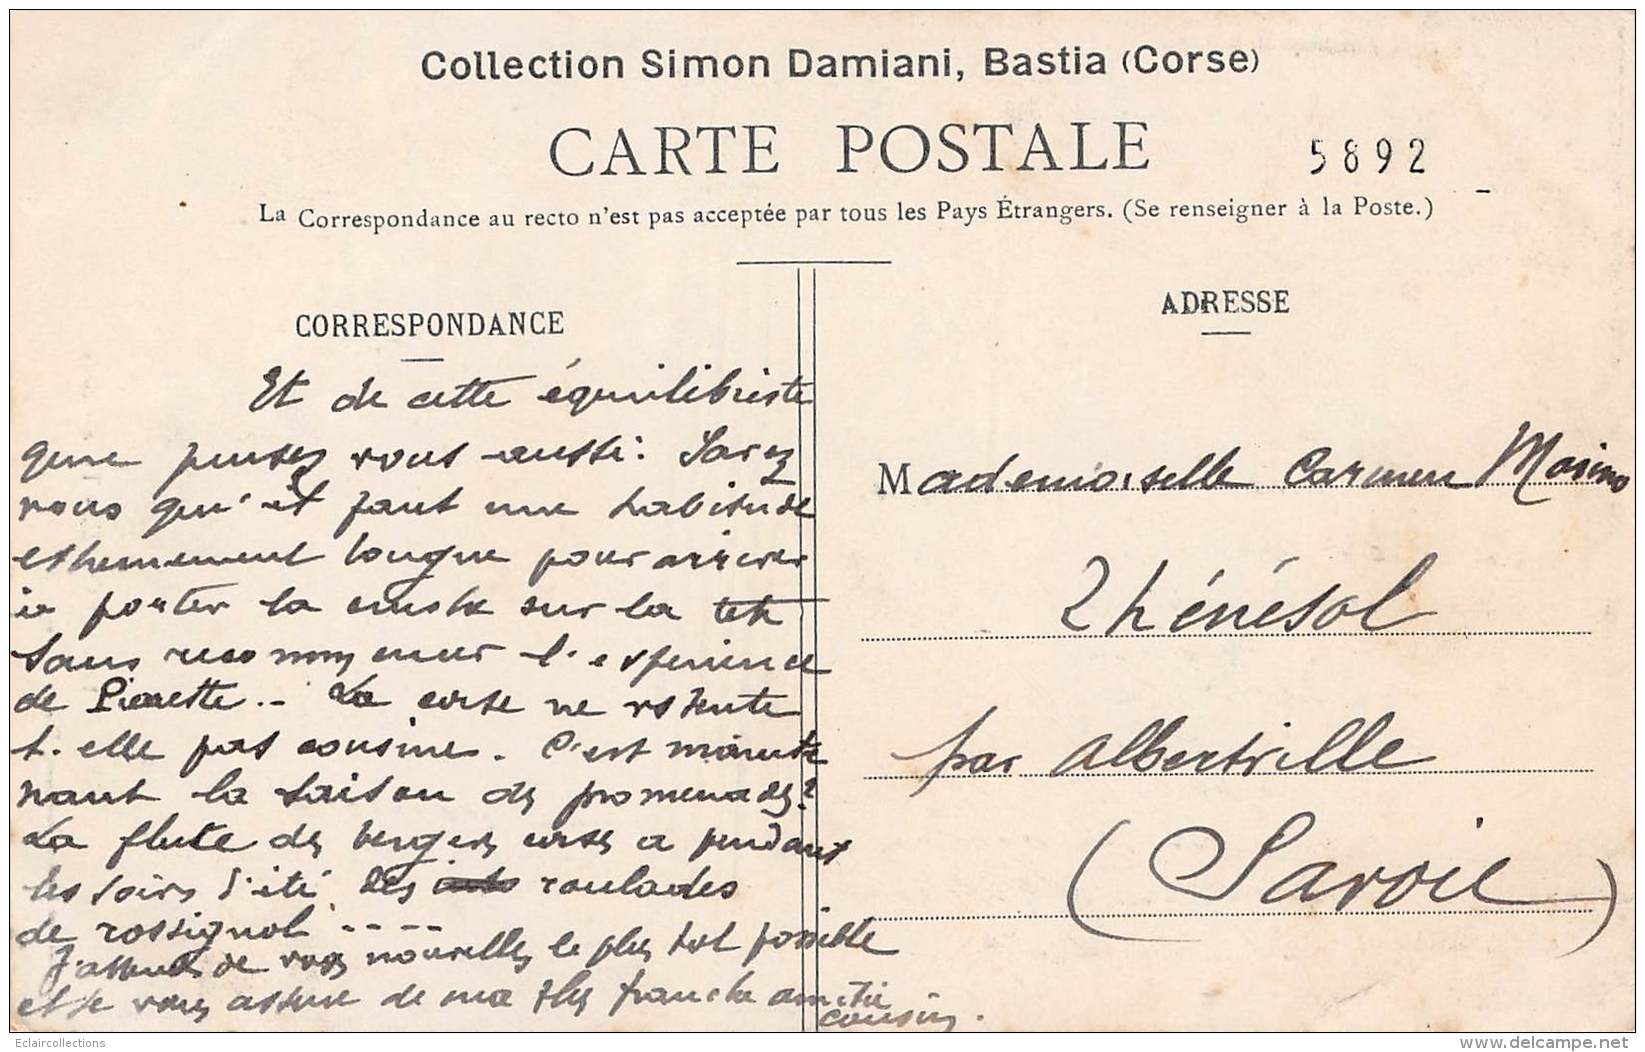 Collection Simon Damiani, Bastia (Corse)
CARTE POSTALE
5892
La Correspondance au recto n'est pas acceptée par tous les Pays Étrangers. (Se renseigner à la Poste.)
CORRESPONDANCE
ADRESSE
Et de cette équilibriste
que pensez vous aussi. Savez
vous qu'il faut une habitude
extremement longue pour arriver
à porter la cruche sur la tete
sans recommencer l'experience
de Pierrette.. La corse ne vs tente
t. elle pas cousine. C'est mainte
nant la saison des promenades?
La flute des bergers corses a pendant
les soirs d'été des roulades
de rossignol ----
J'attends de vos nouvelles le plus tot possible
et je vous assure de ma plus franche amitié
cousin.
Mademoiselle Carmen
Thénésol
par Albertville
(Savoie)
Eclaircollections
delcampe.net